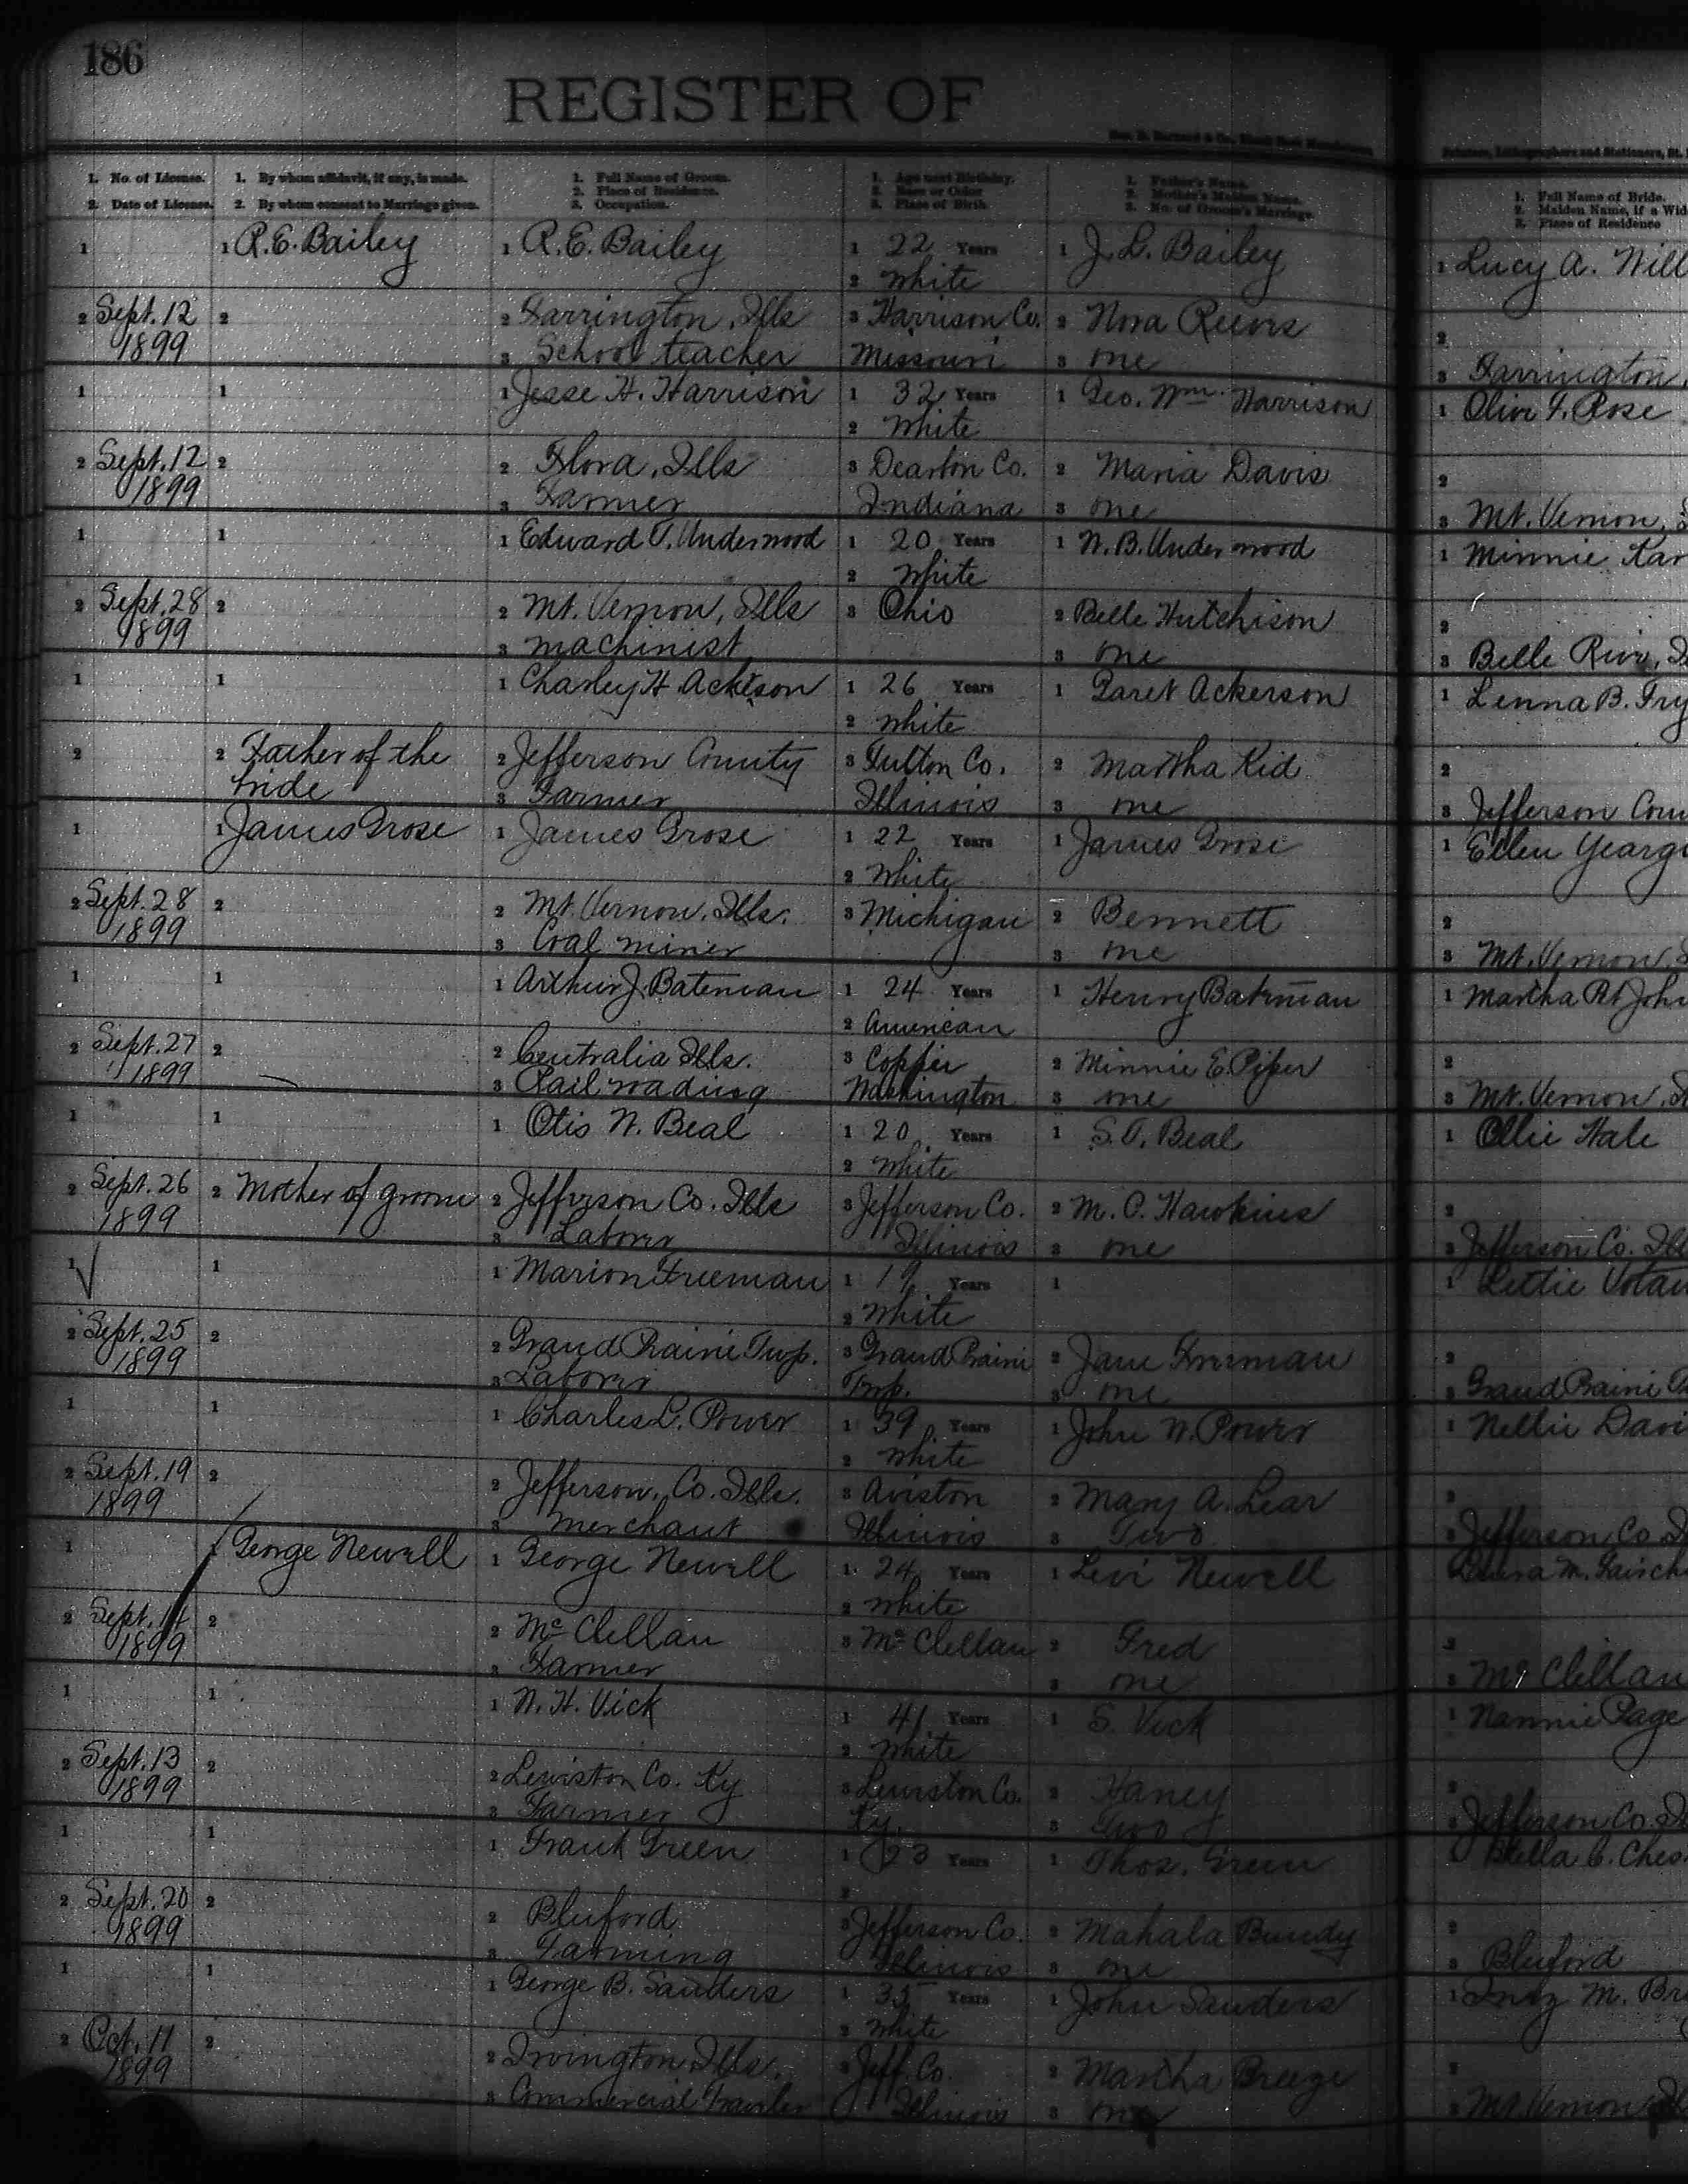 186
REGISTER OF
1. No. of License.
2. Date of License.
1. By whom affidavit, if any, is made.
2. By whom consent to Marriage given.
1. Full Name of Groom.
2. Place of Residence.
3. Occupation.
1. Age next Birthday.
2. Race or Color
3. Place of Birth.
1. Father's Name.
2. Mother's Maiden Name.
3. No. of Groom's Marriage.
1. Full Name of Bride.
2. Maiden Name, if a Wid
3. Place of Residence
1
1 R.E. Bailey
1 R.E. Bailey
1 22 Years
1 J.L. Bailey
1 Lucy A. Will
2 White
2 Sept. 12
1899
2
2 Farrington, Ills
3 School teacher
3 Harrison Co.
Missouri
2 Nora Reevis
3 one
2
3 Farrington,
1
1
1 Jesse H. Harrison
1 32 Years
1 Geo. Wm. Harrison
1 Olive F. Rose
2 White
2 Sept. 12
1899
2
2 Flora, Ills
3 Farmer
3 Dearbon Co.
Indiana
2 Maria Davis
3 one
2
3 Mt. Vernon,
1
1
1 Edward T. Underwood
1 20 Years
1 W.B. Underwood
1 Minnie Kar
2 White
2 Sept. 28
1899
2
2 Mt. Vernon, Ills
3 Machinist
3 Ohio
2 Belle Hutchison
3 one
2
3 Belle Rive,
1
1
1 Charley H Ackerson
1 26 Years
1 Garet Ackerson
1 Lenna B. Fry
2 White
2
2 Father of the
bride
2 Jefferson County
3 Farmer
3 Fulton Co.
Illinois
2 Martha Kid
3 one
2
3 Jefferson Coun
1
1 James Grose
1 James Grose
1 22 Years
1 James Grose
1 Ellen Yearg
2 White
2 Sept. 28
1899
2
2 Mt. Vernon, Ills.
3 Coal miner
3 Michigan
2 Bennett
3 one
2
3 Mt. Vernon,
1
1
1 Arthur J. Bateman
1 24 Years
1 Henry Bateman
1 Martha R. John
2 American
2 Sept. 27
1899
2
2 Centralia Ills.
3 Rail roading
3 Copper
Washington
2 Minnie E. Piper
3 one
2
3 Mt. Vernon,
1
1
1 Otis N. Beal
1 20 Years
1 S.T. Beal
1 Ollie Hale
2 White
2 Sept. 26
1899
2 Mother of groom
2 Jefferson Co. Ills
3 Laborer
3 Jefferson Co.
Illinois
2 M. C. Hawkins
3 one
2
3 Jefferson Co. Ill
1
1
1 Marion Freeman
1 19 Years
1
1 Lettie Votau
2 White
2 Sept. 25
1899
2
2 Grand Prairie Twp.
3 Laborer
3 Grand Prairie
Twp.
2 Jane Freeman
3 one
2
3 Grand Prairie T
1
1
1 Charles L. Power
1 39 Years
1 John W. Power
1 Nellie Davi
2 White
2 Sept. 19
1899
2
2 Jefferson Co. Ills.
3 Merchant
3 Aviston
Illinois
2 Mary A. Lear
3 Two
2
3 Jefferson Co.
1
George Newell
1 George Newell
1 24 Years
1 Levi Newell
M. Fairch
2 White
2 Sept. 14
1899
2
2 McClellan
3 Farmer
3 McClellan
2 Fred
3 one
2
3 McClellan
1
1
1 N. H. Vick
1 41 Years
1 S. Vick
1 Nannie Page
2 White
2 Sept. 13
1899
2
2 Lewiston Co. Ky
3 Farmer
3 Lewiston Co.
Ky.
2 Haney
3 Two
2
3 Jefferson Co.
1
1
1 Frank Green
1 23 Years
1 Thos. Green
1 Stella C. Ches
2
2 Sept. 20
1899
2
2 Bluford
3 Farming
3 Jefferson Co.
Illinois
2 Mahala Bundy
3 one
2
3 Bluford
1
1
1 George B. Sanders
1 35 Years
1 John Sanders
1 Inez M. Br
2 White
2 Oct. 11
1899
2
2 Irvington, Ills.
3 Commercial Traveler
3 Jeff. Co.
Illinois
2 Martha Breeze
3 one
2
3 Mt. Vernon